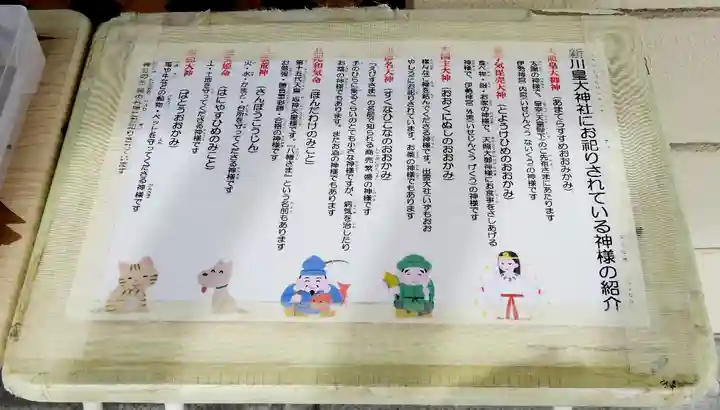 新川皇大神社にお祀りされている神様の紹介
皇大御神
太陽の神様で、皇室(天皇陛下)のご先布さまにあたります
伊勢神宮 内宮(いせじんぐう ないくう)の神様です
大神(とようけひめのおおかみ)
食べ物・穀・お家の神様で、天照大御神様にお食事をさしあげる
神様で、伊勢神宮 外宮(いせじんぐう げくう)の神様です
国主大神(おおくにぬしのおおかみ)
様んなご縁を結んでくださる神様です。出雲大社(いずもおお
やしろ)にお祀りされています。お薬の神様でもあります
名大神(すくなひこなのおおかみ)
「えびすさま」の名前で知られる商売繁盛の神様です
手のひらに乗るくらいのとても小さな神様ですが、病気を治したり
お薬の神様でもあります。またお酒の神様でもあります
和気命(ほんだわけのみこと)
第十五代天皇 応神天皇様です。「八幡さま」という名前もあります
荒神(さんぽうこうじん)
火・水・かまど・台所を守ってくださる神様です
姫命(はにやすひめのみこと)
土・土地を守ってくださる神様です
大神(はとうおおかみ)